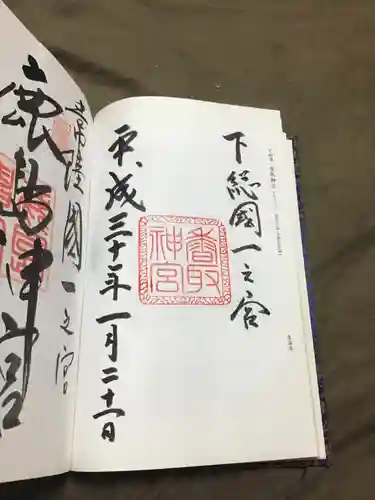 下総國一之宮
香取
神宮
平成三十一年一月二十一日
常陸國一之宮
鹿島神宮